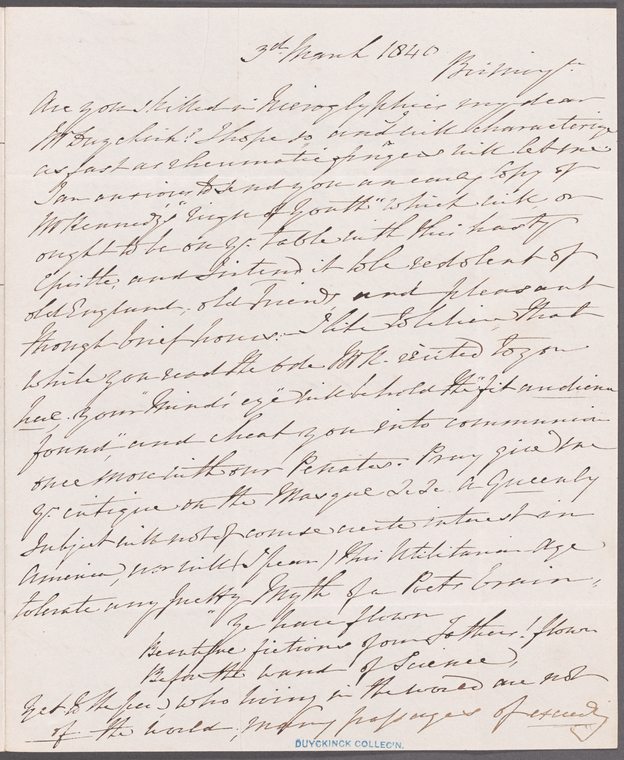 3rd March 1840
Birming
Are you skilled in Hieroglyphics my dear
Mr Duyckinck? I hope so and will characterize
as fast as rheumatic fingers will let me
I am anxious to send you an early copy of
Mr Kennedy's "Reign of Youth" which will or
ought to be on yr table with this hasty
Epistle, and I intend it to be redolent of
old England, old Friends and pleasant
though brief hours. I like to believe that
while you read the ode Mr K. recited to you
here. your "mind's eye" will behold the "fit audience
found" and cheat you into communion
once more with our Penates. Pray give me
yr critique on the Masque &c &c. A Queenly
subject will not of course excite interest in
America, nor will (I fear) this Utilitarian Age
tolerate any pretty Myth of a Poets brain,
"Ye have flown
Beautiful fictions of our Fathers! flown
Before the wand of Science,
Yet to the few who living in the world are not
of the world, many passages of
DUYCKINCK COLLEC'N.